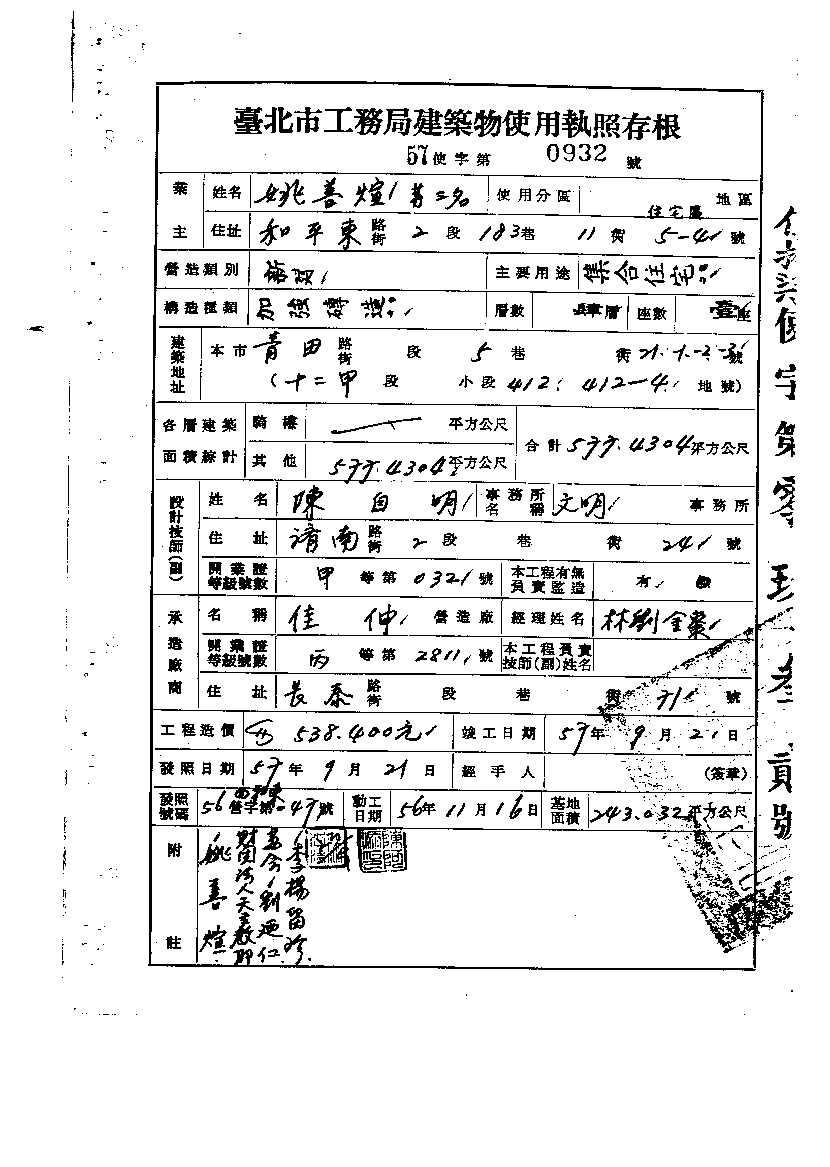 臺北市工務局建築物使用執照存根
57使字第 0932 號
業主 姓名 姚善煊 等三名 使用分區 住宅區 地區
住址 和平東 路街 2 段 183巷 11 衖 5-4 號
營造類別 新 主要用途 集合住宅
構造種類 加強磚造 層數 肆層 座數 壹座
建築地址 本市 青田 路街 段 5 巷 衖 21.1.-2.-3. 號
(十二甲 段 小段 412. 412-4. 地號)
各層建築面積綜計 騎樓 平方公尺 合計 577.4304平方公尺
其他 577.4304平方公尺
設計技師(副) 姓名 陳自明 事務所名稱 文明 事務所
住址 濟南 路街 2 段 巷 衖 241 號
開業證等級號數 甲 等第 0321 號 本工程有無負責監造 有
承造廠商 名稱 佳仲 營造廠 經理姓名 林劉金
開業證等級號數 丙 等第 2811 號 本工程負責技師(副)姓名
住址 長泰 路街 段 巷 衖 71 號
工程造價 538.400元 竣工日期 57年 9 月 2 日
發照日期 57 年 9 月 21 日 經手人 (簽章)
發照號碼 56 營字第 047 號 動工日期 56年 11 月 16 日 基地面積 243.032平方公尺
附註
李楊留珍
劉迺仁
財團法人天主教耶
姚善煊
使字第零玖叁貳號